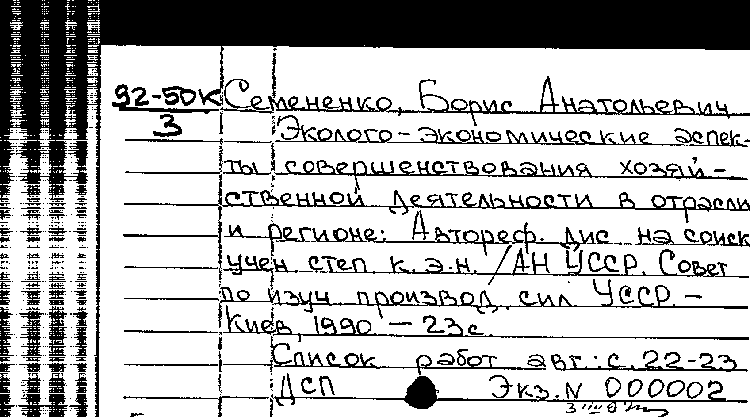 92-5DK Семененко, Борис Анатольевич
3
Эколого-экономические аспек-
ты совершенствования хозяй-
ственной деятельности в отрасли
и регионе: Автореф. дис на соиск
учен степ к.э.н. /АН УССР. Совет
по изуч производ. сил УССР. -
Киев, 1990 - 23с.
Список работ авт.: с. 22-23
ДСП Экз. N 000002